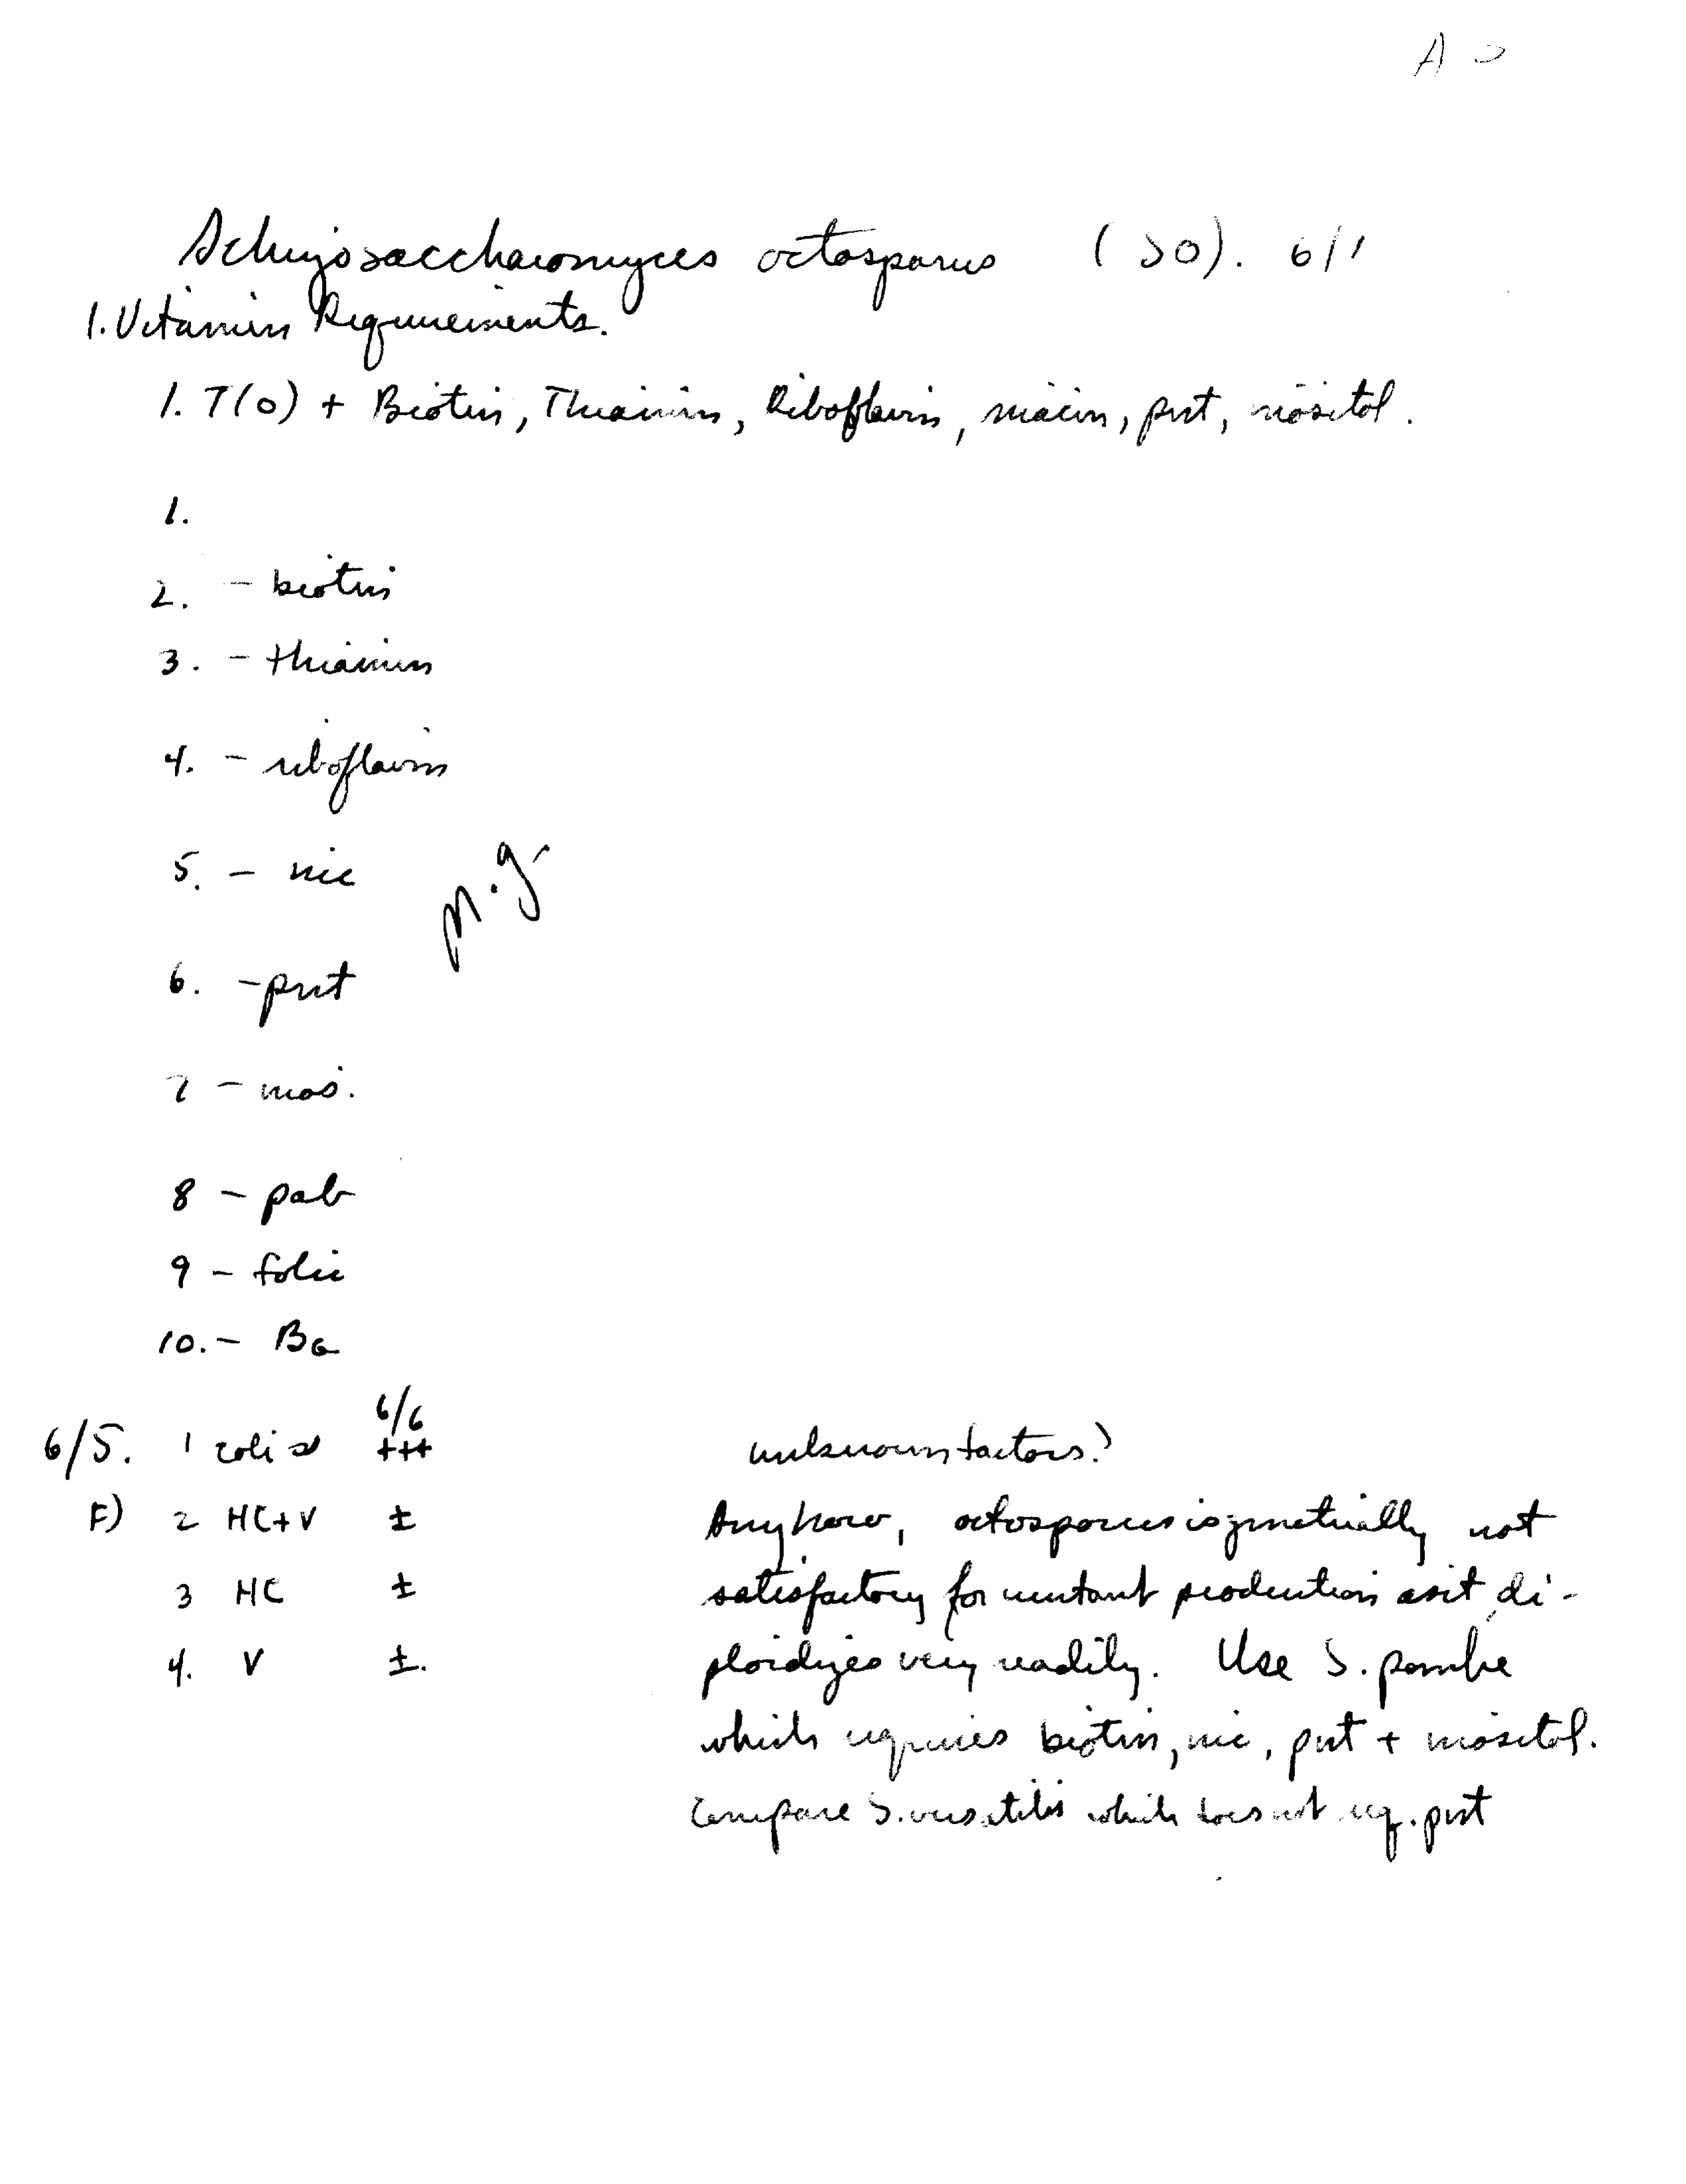 Schizosaccharomyces octosporus (SO). 6/1
1. Vitamin Requirements.
1. T(0) + Biotin, Thiamin, Riboflavin, niacin, pnt, inositol.
1.
2. - biotin
3. - thiamin
4. - riboflavin
5. - nic
n.g.
6. - pnt
7 - inos.
8 - pab
9 - folic
10. - B6
6/6
6/5. 1 coli +++ unknown factors?
F) 2 HC+V ± Anyhow, octosporus is genetically not
3 HC ± satisfactory for mutant production as it di-
4. V ±. ploidizes very readily. Use S. pombe
which requires biotin, nic, pnt + inositol.
Compare S. versatilis which does not req. pnt